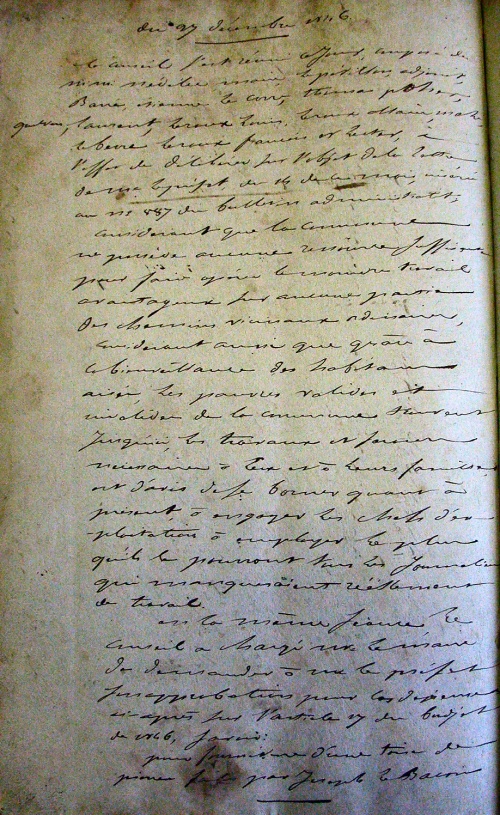 du 27 décembre 1846.
le conseil s'est réuni ce jour, composé de
adjoint,
thomas
laurent, leroux louis, leroux
leroux françois et
l'effet de délibérer sur l'objet de la lettre
de mr le préfet du 14 de ce mois, insérée
au no 887 du bulletin administratif;
considérant que la commune
ne possède aucune ressource suffisante
pour faire opérer le moindre travail
avantageux sur aucune partie
des chemins vicinaux ordinaires,
considérant aussi que grâce à
la bienveillance des habitans
aisés, les pauvres valides et
invalides de la commune trouvent
jusqu'ici, les travaux et secours
nécessaires à eux et à leurs familles
est d'avis de se borner quant à
présent, à engager les chefs d'ex-
ploitation à employer le plus
qu'ils le pourront tous les journaliers
qui manqueraient réellement
de travail.
en la même séance le
conseil a chargé mr le maire
de demander à mr le préfet
son approbation pour les dépenses
ci-après sur l'article 17 du budjet
de 1846, savoir:
pour fourniture d'une toise de
pierre par Joseph le